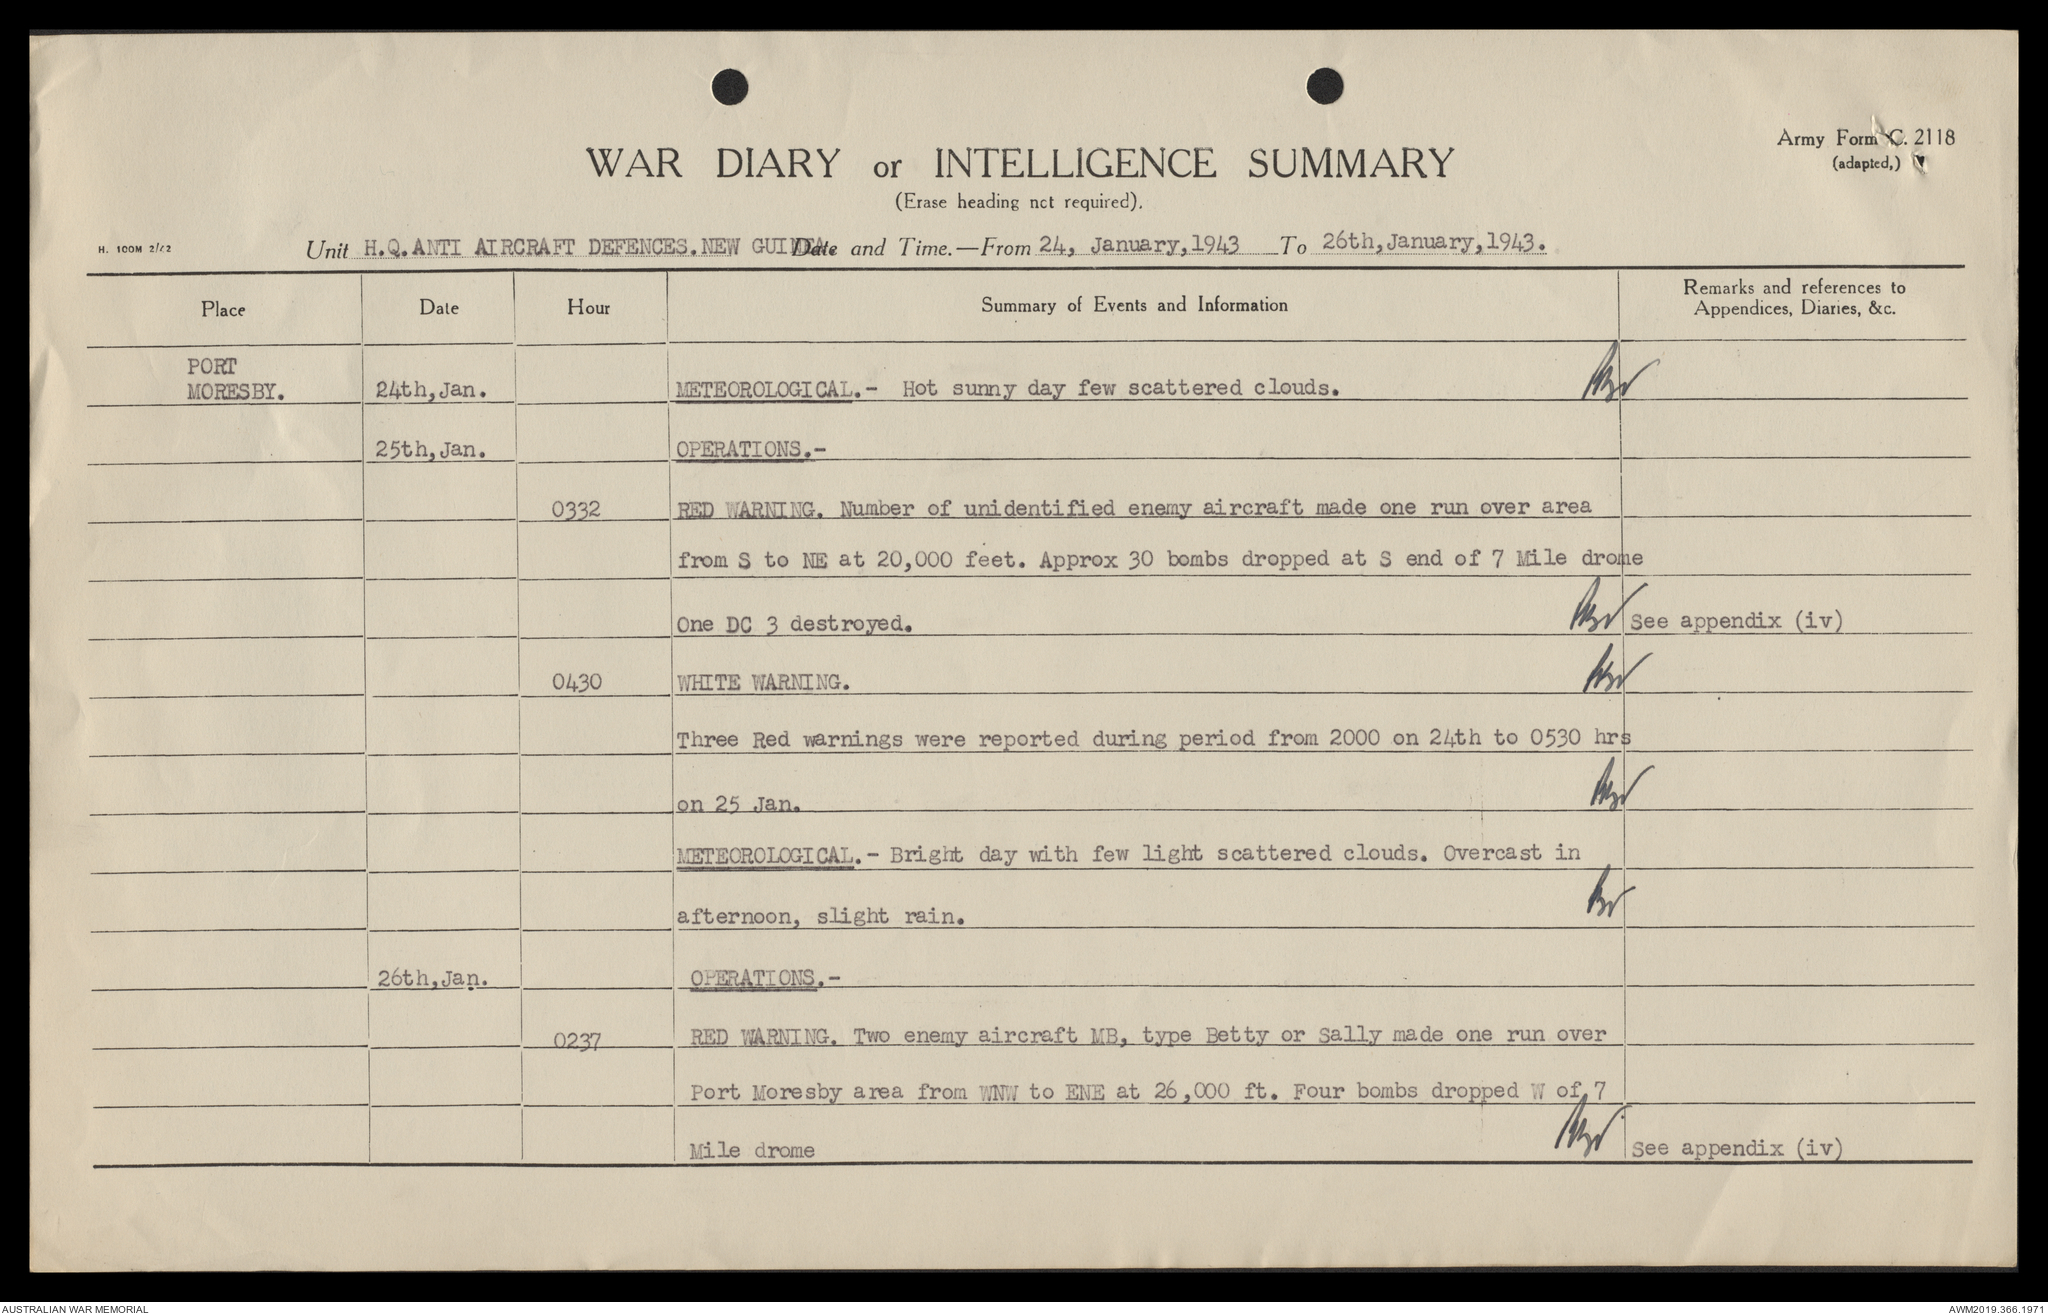 Army Form C. 2118
(adapted,)
WAR DIARY or INTELLIGENCE SUMMARY
(Erase heading not required).
H. 100M 2/42
Unit H.Q.ANTI AIRCRAFT DEFENCES.NEW GUINEA. Date and Time.—From 24, January,1943 To 26th,January,1943.
Place Date Hour Summary of Events and Information Remarks and references to
Appendices, Diaries, &c.
PORT
MORESBY. 24th,Jan. METEOROLOGICAL.- Hot sunny day few scattered clouds.
25th,Jan. OPERATIONS.-
0332 RED WARNING. Number of unidentified enemy aircraft made one run over area
from S to NE at 20,000 feet. Approx 30 bombs dropped at S end of 7 Mile drome
One DC 3 destroyed. See appendix (iv)
0430 WHITE WARNING.
Three Red warnings were reported during period from 2000 on 24th to 0530 hrs
on 25 Jan.
METEOROLOGICAL.- Bright day with few light scattered clouds. Overcast in
afternoon, slight rain.
26th,Jan. OPERATIONS.-
0237 RED WARNING. Two enemy aircraft MB, type Betty or Sally made one run over
Port Moresby area from WNW to ENE at 26,000 ft. Four bombs dropped W of 7
Mile drome See appendix (iv)
AUSTRALIAN WAR MEMORIAL AWM2019.366.1971